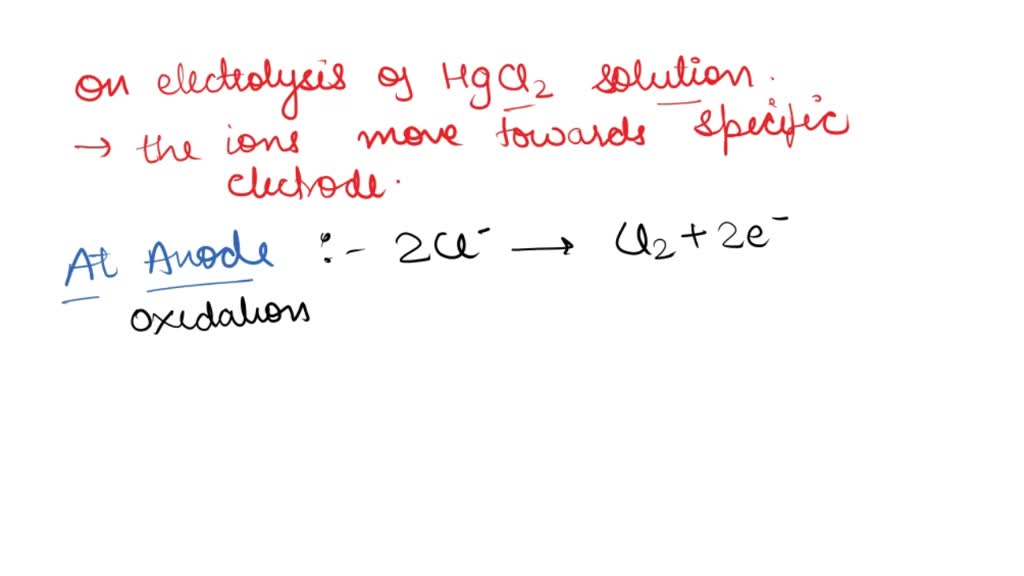 on electrolysis of HgCl₂ solution.
→ the ions move towards specific
electrode.
At Anode :- 2Cl⁻ ⟶ Cl₂ + 2e⁻
oxidation